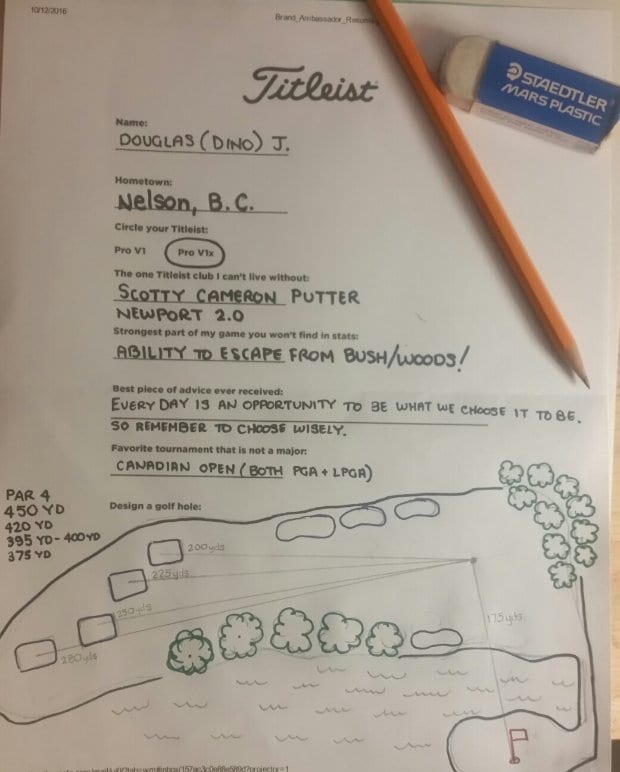 10/12/2016
Titleist
STAEDTLER
MARS PLASTIC
Name:
DOUGLAS (DINO) J.
Hometown:
Nelson, B.C.
Circle your Titleist:
Pro V1 Pro V1x
The one Titleist club I can't live without:
SCOTTY CAMERON PUTTER
NEWPORT 2.0
Strongest part of my game you won't find in stats:
ABILITY TO ESCAPE FROM BUSH/WOODS!
Best piece of advice ever received:
EVERY DAY IS AN OPPORTUNITY TO BE WHAT WE CHOOSE IT TO BE.
SO REMEMBER TO CHOOSE WISELY.
Favorite tournament that is not a major:
CANADIAN OPEN (BOTH PGA + LPGA)
Design a golf hole:
PAR 4
450 YD
420 YD
395 YD - 400 YD
375 YD
200yds
225yds
250yds
280yds
175yds